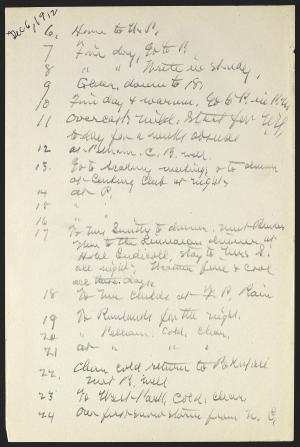 Dec 6, 1912
6, Home to W. P.
7 Fine day, Go to P.
8 " " Write in study,
9 Clear, down to 18,
10 Fine day & warm, Go to P. in P.M.
11 Overcast, mild, Start for N.Y.
today for a weeks absence
12 at Pelham. C. B. well.
13. Go to Academy meeting, & to dinner
at Century Club at night,
14 at P.
15 "
16 " "
17 To Mrs to dinner, meet
then to the dinner at
Hotel Endicott, stay to Mrs S.
all night; Weather fine & cool
all these days,
18 To Mr Childs at F. P. Rain
19 To Rowlands for the night.
20 " Pelham. Cold, clear,
21 at " " "
22. Clear cold return to
meet B. well
23 To West Park, cold, clear
24 Our first snow storm from N. E,